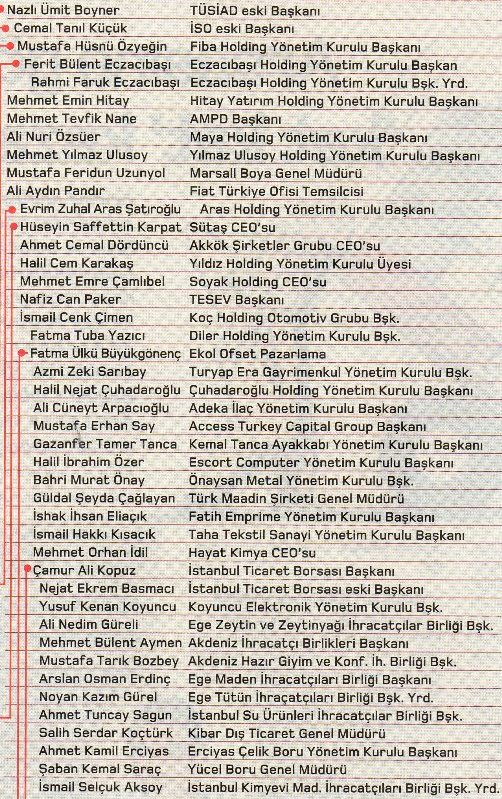 Nazlı Ümit Boyner TÜSİAD eski Başkanı
Cemal Tanıl Küçük İSO eski Başkanı
Mustafa Hüsnü Özyeğin Fiba Holding Yönetim Kurulu Başkanı
Ferit Bülent Eczacıbaşı Eczacıbaşı Holding Yönetim Kurulu Başkan
Rahmi Faruk Eczacıbaşı Eczacıbaşı Holding Yönetim Kurulu Bşk. Yrd.
Mehmet Emin Hitay Hitay Yatırım Holding Yönetim Kurulu Başkanı
Mehmet Tevfik Nane AMPD Başkanı
Ali Nuri Özsüer Maya Holding Yönetim Kurulu Başkanı
Mehmet Yılmaz Ulusoy Yılmaz Ulusoy Holding Yönetim Kurulu Başkanı
Mustafa Feridun Uzunyol Marsall Boya Genel Müdürü
Ali Aydın Pandır Fiat Türkiye Ofisi Temsilcisi
Evrim Zuhal Aras Şatıroğlu Aras Holding Yönetim Kurulu Başkanı
Hüseyin Saffettin Karpat Sütaş CEO'su
Ahmet Cemal Dördüncü Akkök Şirketler Grubu CEO'su
Halil Cem Karakaş Yıldız Holding Yönetim Kurulu Üyesi
Mehmet Emre Çamlıbel Soyak Holding CEO'su
Nafiz Can Paker TESEV Başkanı
İsmail Cenk Çimen Koç Holding Otomotiv Grubu Bşk.
Fatma Tuba Yazıcı Diler Holding Yönetim Kurulu Bşk.
Fatma Ülkü Büyükgönenç Ekol Ofset Pazarlama
Azmi Zeki Sarıbay Turyap Era Gayrimenkul Yönetim Kurulu Bşk.
Halil Nejat Çuhadaroğlu Çuhadaroğlu Holding Yönetim Kurulu Başkanı
Ali Cüneyt Arpacıoğlu Adeka İlaç Yönetim Kurulu Başkanı
Mustafa Erhan Say Access Turkey Capital Group Başkanı
Gazanfer Tamer Tanca Kemal Tanca Ayakkabı Yönetim Kurulu Başkanı
Halil İbrahim Özer Escort Computer Yönetim Kurulu Başkanı
Bahri Murat Önay Önaysan Metal Yönetim Kurulu Bşk.
Güldal Şeyda Çağlayan Türk Maadin Şirketi Genel Müdürü
İshak İhsan Eliaçık Fatih Emprime Yönetim Kurulu Başkanı
İsmail Hakkı Kısacık Taha Tekstil Sanayi Yönetim Kurulu Başkanı
Mehmet Orhan İdil Hayat Kimya CEO'su
Çamur Ali Kopuz İstanbul Ticaret Borsası Başkanı
Nejat Ekrem Basmacı İstanbul Ticaret Borsası eski Başkanı
Yusuf Kenan Koyuncu Koyuncu Elektronik Yönetim Kurulu Bşk.
Ali Nedim Güreli Ege Zeytin ve Zeytinyağı İhracatçılar Birliği Bşk.
Mehmet Bülent Aymen Akdeniz İhracatçı Birlikleri Başkanı
Mustafa Tarık Bozbey Akdeniz Hazır Giyim ve Konf. İh. Birliği Bşk.
Arslan Osman Erdinç Ege Maden İhracatçıları Birliği Başkanı
Noyan Kazım Gürel Ege Tütün İhraçatçıları Birliği Bşk. Yrd.
Ahmet Tuncay Sagun İstanbul Su Ürünleri İhracatçılar Birliği Bşk.
Salih Serdar Koçtürk Kibar Dış Ticaret Genel Müdürü
Ahmet Kamil Erciyas Erciyas Çelik Boru Yönetim Kurulu Başkanı
Şaban Kemal Saraç Yücel Boru Genel Müdürü
İsmail Selçuk Aksoy İstanbul Kimyevi Mad. İhracatçıları Birliği Bşk. Yrd.